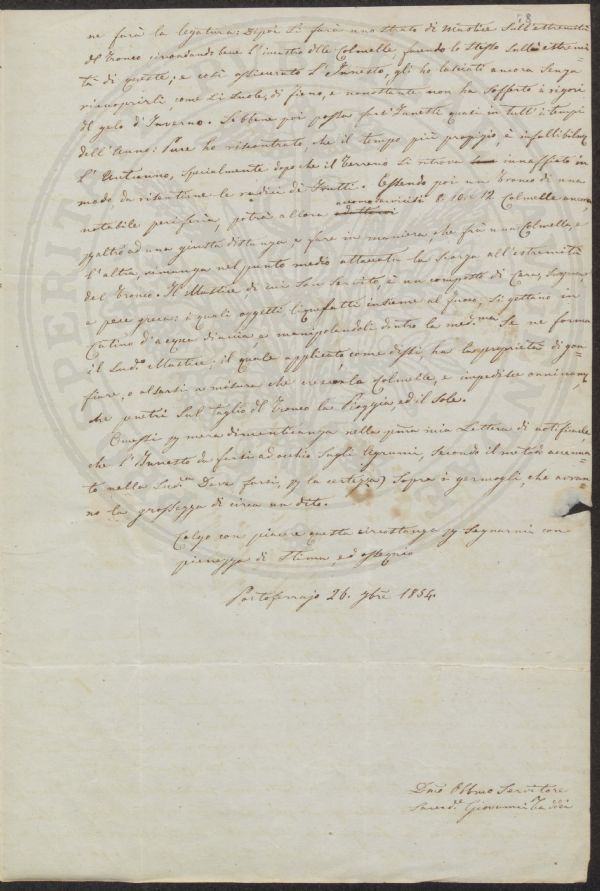 ne farà la legatura: Dipoi si farà uno strato di Mastice sull'estremità
del Tronco circondando bene l'inestio delle Colmelle facendo lo stesso sulle estremi=
tà di queste; e così assicurato l'Innesto, gli ho lasciati ancora senza
ricuoprirli come si suole, di fieno, e nonostante non ha sofferto i rigori
del gelo d'Inverno. Sebbene poi possa farsi Innesti quasi in tutt'i tempi
dell'Anno: Pure ho riscontrato, che il tempo più propizio, è infallibilm.e
l'Autunno, specialmente dopo che il Terreno si ritrova innaffiato in
modo, da ritenerne le radici di Frutti. Essendo poi un Tronco di una
notabile periferia, potrà allora 8. 10. e 12 Colmelle ancora,
pyaltro ad una giusta distanza e fare in maniera, che fra una Colmella, e
l'altra, rimanga nel punto medio attaccata la Scorza all'estremità
del Tronco. Il Mastice di cui son Servito, è un composto di Cera, Sugna,
e pece greca: i quali oggetti liquefatti insieme al fuoco, si gettano in
Catino d'acqua diaccia e manipolandoli dentro la med.ma Se ne forma
il Sud.o Mastice; il quale applicato, come dissi ha la proprietà di gon=
fiare, o alzarsi a misura che cresconla Colmelle, e impedisce
che penetri sul taglio del Tronco la Pioggia, ed il Sole.
Ommisi py mera dimenticanza nella pma mia Lettera di notificarle,
che l'Innesto da farsi ad occhio sugli Agrumi, Secondo il metodo accenna=
to nella Sud.a Deve farsi, (py la certezza) Sopra i germogli, che avran=
no la grossezza di circa un dito.
Colgo con piacere questa circostanza py Segnarmi con
pienezza di Stima, ed ossequio
Portoferrajo 26. 9bre 1854.
Dmo Obbmo Servitore
Giovanni Taddei